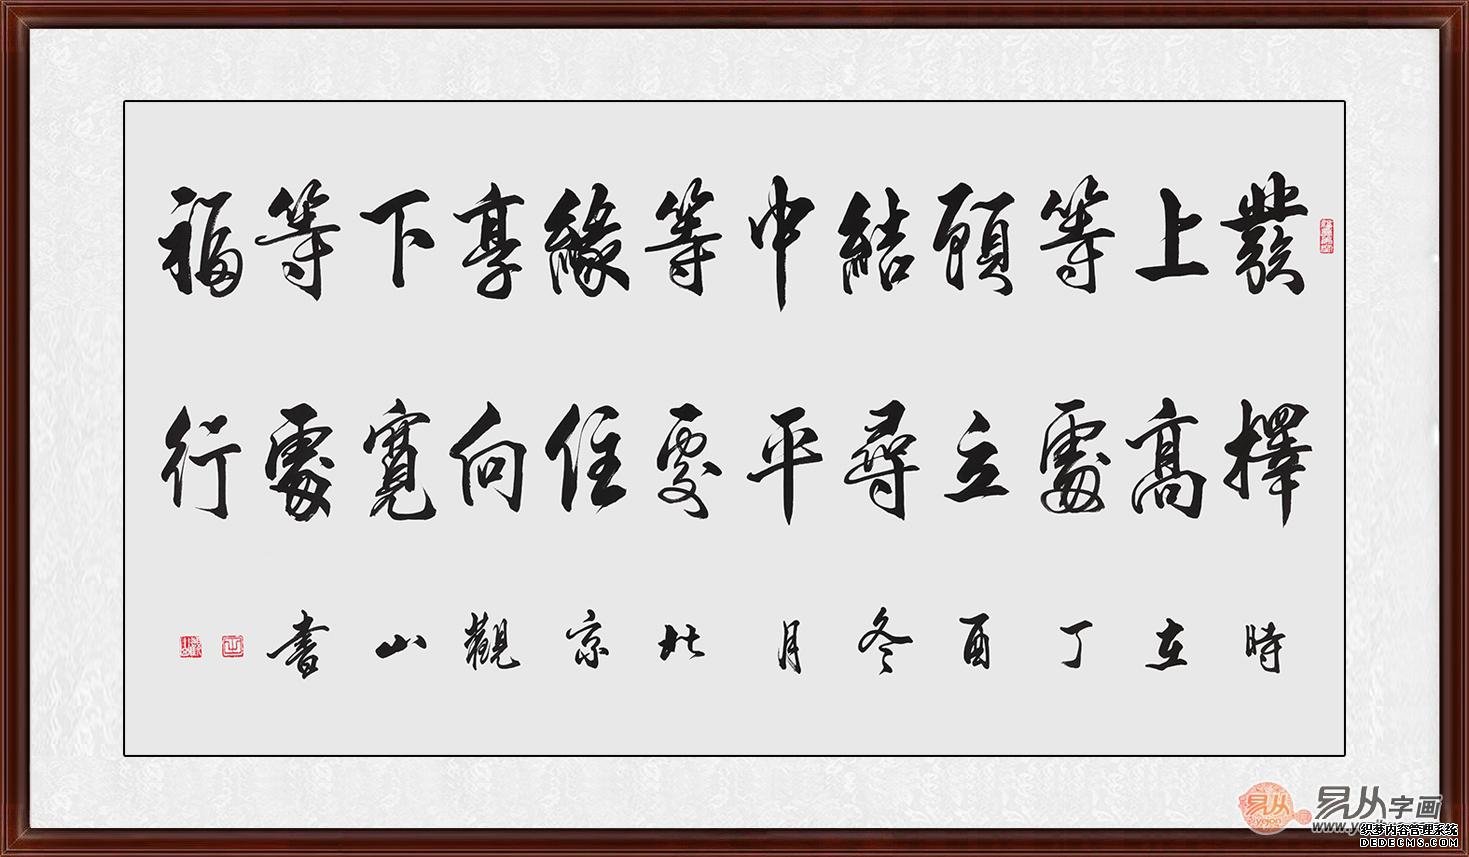 發上等願結中等緣享下等福
擇高處立尋平處住向寬處行
時在丁酉冬月北京觀山書
易从字画
yecon
织梦内容管理系统
DEDECMS.COM